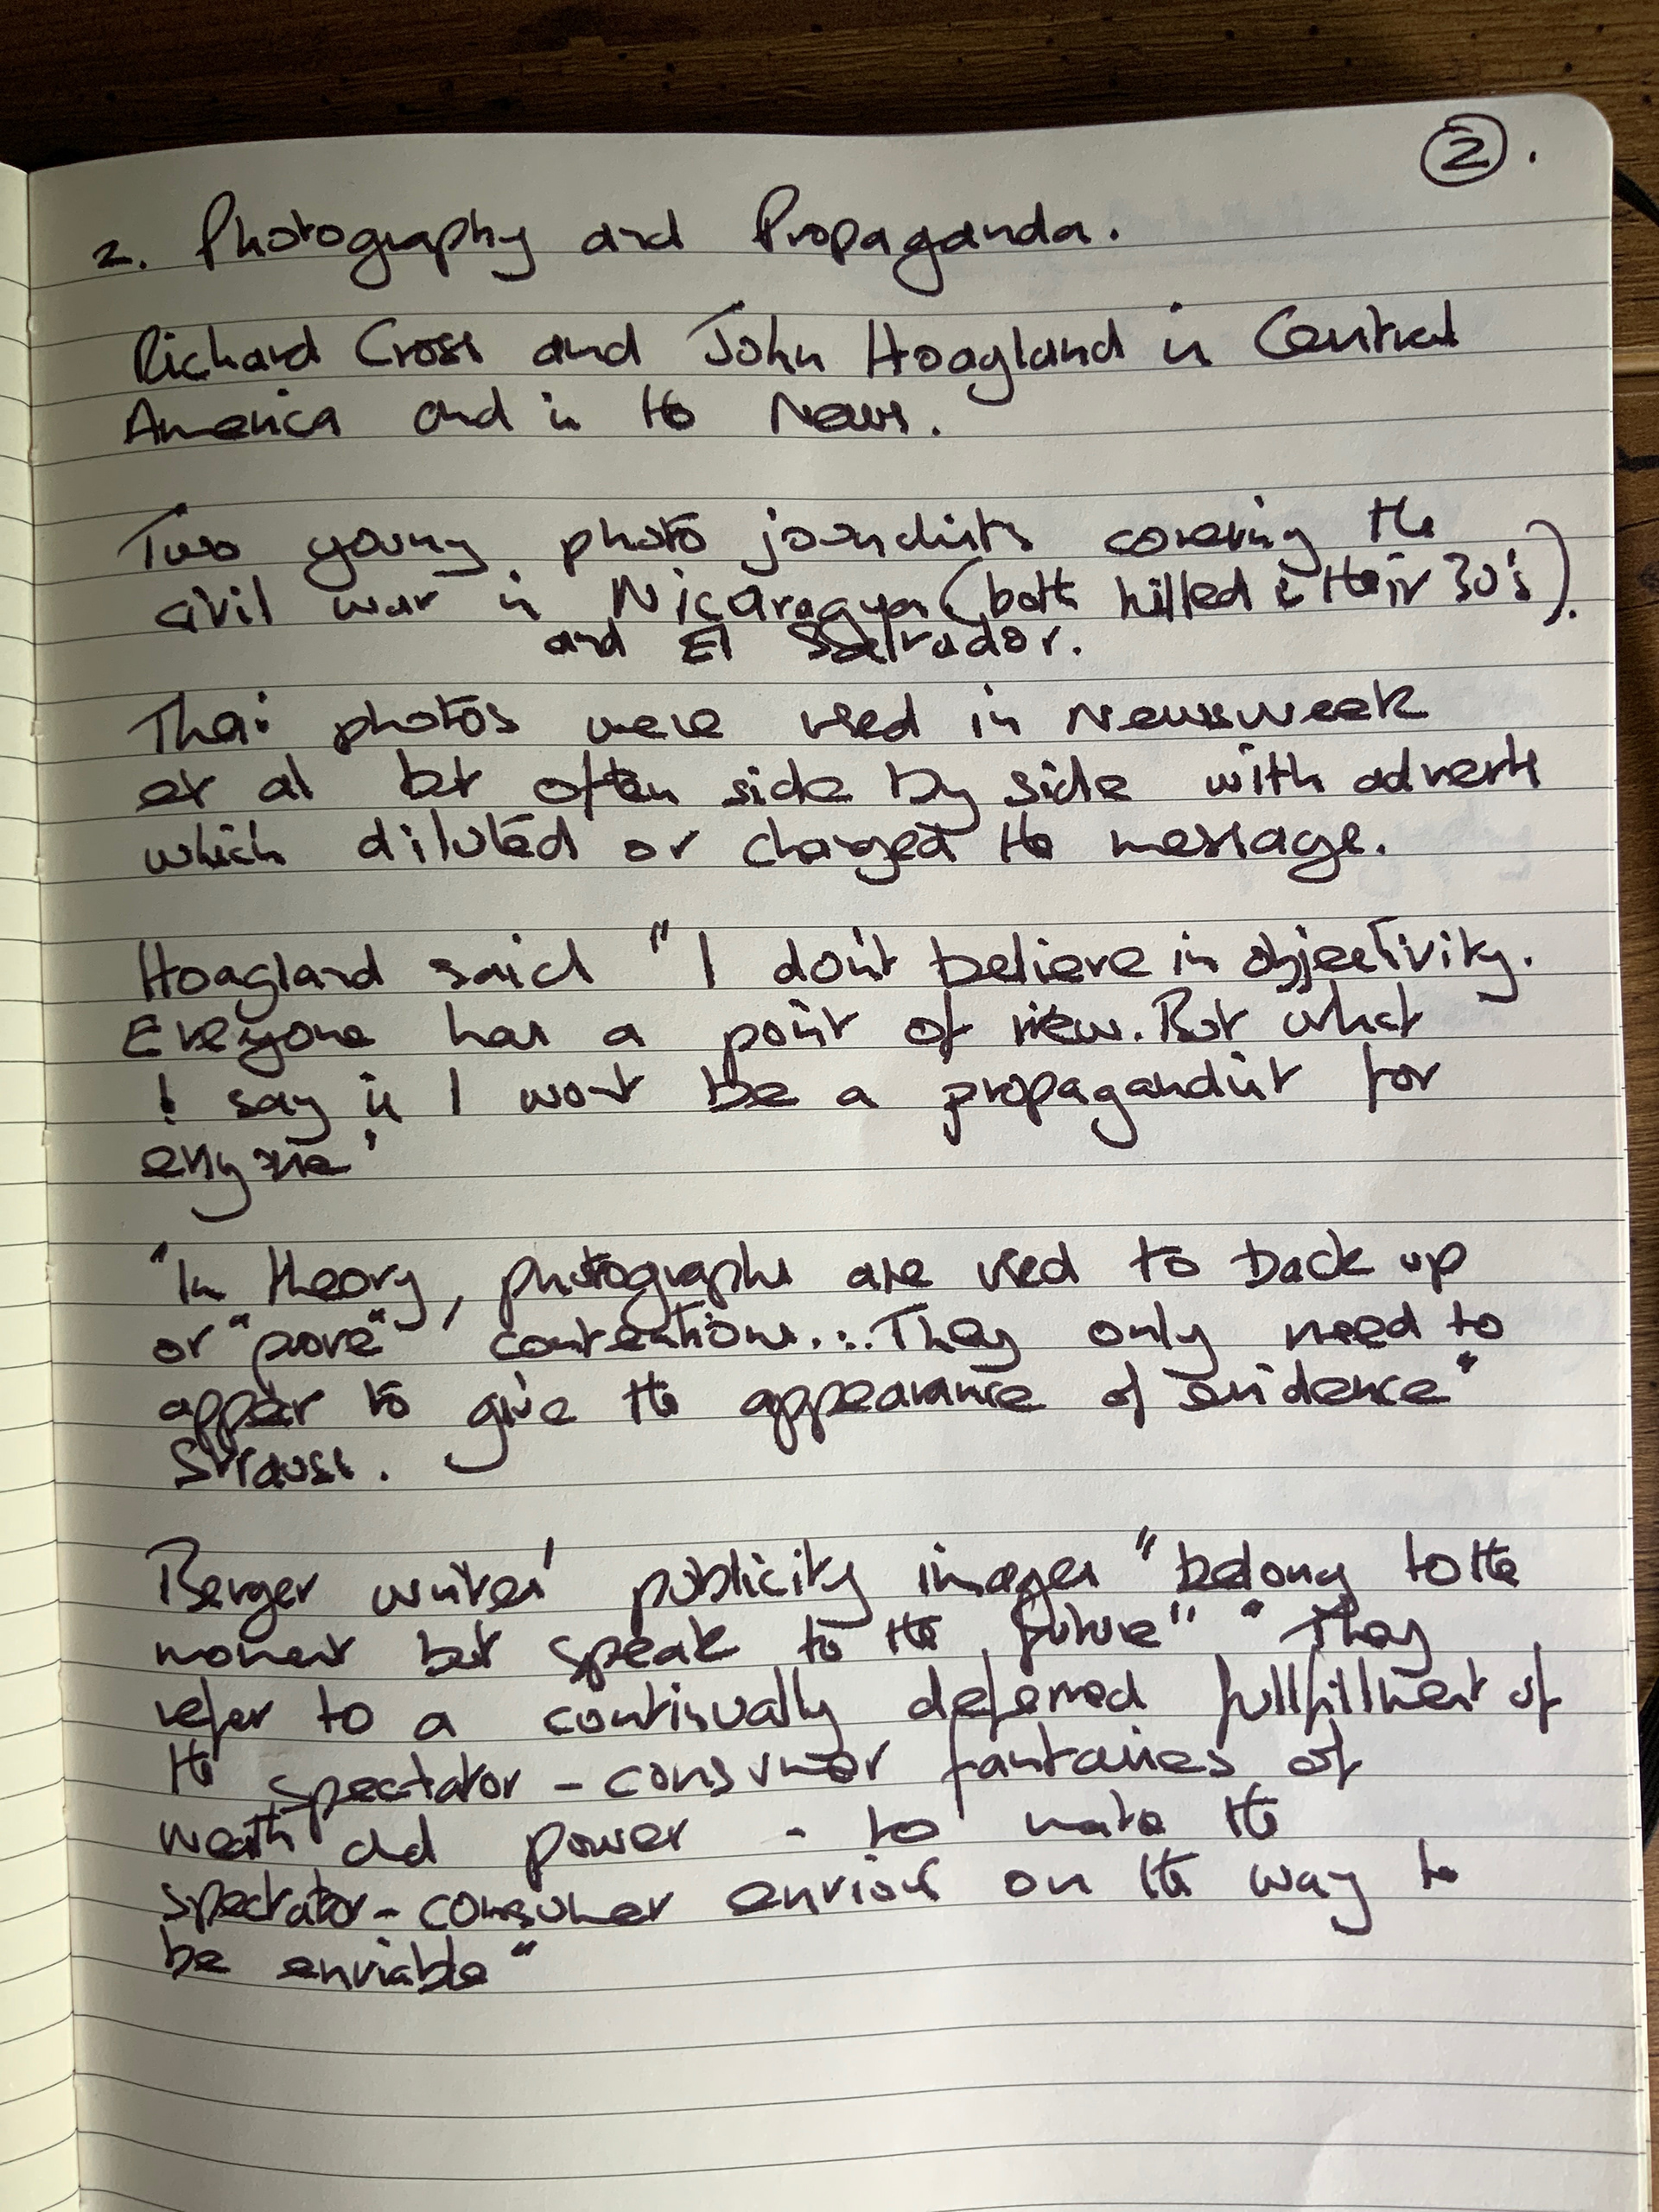 ②.
2. Photography and Propaganda.
Richard Cross and John Hoagland in Central
America and in the News.
Two young photo journalists covering the
civil war in Nicaragua (both killed in their 30's).
and El Salvador.
Their photos were used in Newsweek
et al but often side by side with adverts
which diluted or changed the message.
Hoagland said "I don't believe in objectivity.
Everyone has a point of view. But what
I say is I won't be a propagandist for
anyone"
"In theory, photographs are used to back up
or "prove" contentions... They only need to
appear to give the appearance of evidence"
Strauss.
Berger writes' publicity images "belong to the
moment but speak to the future" "They
refer to a continually deferred fullfillment of
the spectator - consumer fantasies of
wealth and power - to make the
spectator - consumer envious on the way to
be enviable"